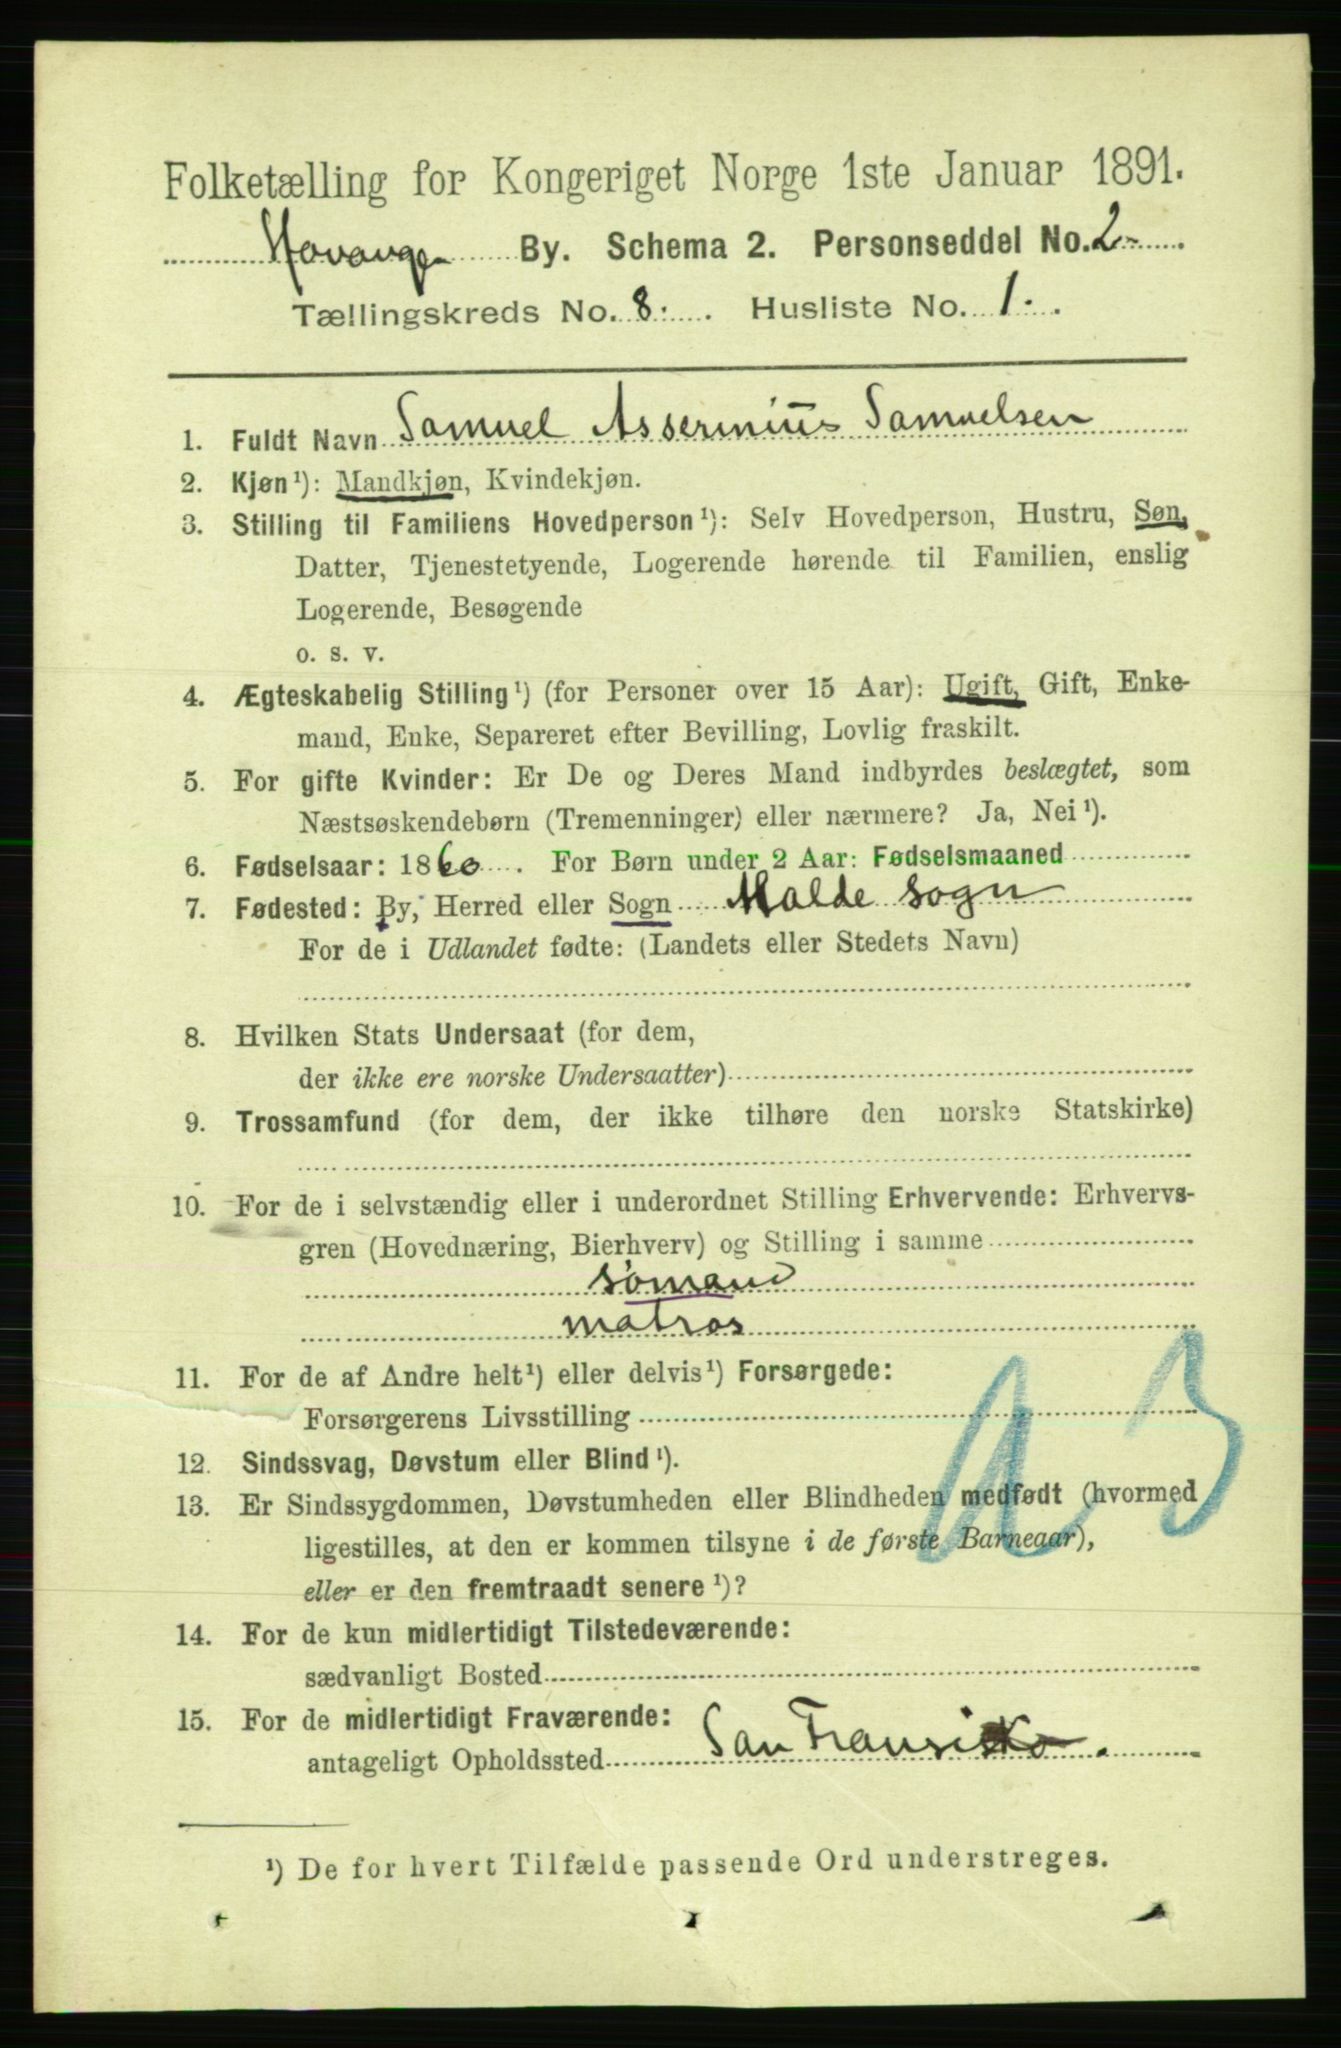 Folketælling for Kongeriget Norge 1ste Januar 1891.
Stavanger By. Schema 2. Personseddel No. 2
Tællingskreds No. 8. Husliste No. 1.
1. Fuldt Navn Samuel Asserinius Samuelsen
2. Kjøn¹): Mandkjøn, Kvindekjøn.
3. Stilling til Familiens Hovedperson¹): Selv Hovedperson, Hustru, Søn,
Datter, Tjenestetyende, Logerende hørende til Familien, enslig
Logerende, Besøgende
o. s. v.
4. Ægteskabelig Stilling¹) (for Personer over 15 Aar): Ugift, Gift, Enke-
mand, Enke, Separeret efter Bevilling, Lovlig fraskilt.
5. For gifte Kvinder: Er De og Deres Mand indbyrdes beslægtet, som
Næstsøskendebørn (Tremenninger) eller nærmere? Ja, Nei¹).
6. Fødselsaar: 1860. For Børn under 2 Aar: Fødselsmaaned
7. Fødested: By, Herred eller Sogn Malde sogn
For de i Udlandet fødte: (Landets eller Stedets Navn)
8. Hvilken Stats Undersaat (for dem,
der ikke ere norske Undersaatter)
9. Trossamfund (for dem, der ikke tilhøre den norske Statskirke)
10. For de i selvstændig eller i underordnet Stilling Erhvervende: Erhvervs-
gren (Hovednæring, Bierhverv) og Stilling i samme
sømand
matros
11. For de af Andre helt¹) eller delvis¹) Forsørgede:
Forsørgerens Livsstilling
12. Sindssvag, Døvstum eller Blind¹).
13. Er Sindssygdommen, Døvstumheden eller Blindheden medfødt (hvormed
ligestilles, at den er kommen tilsyne i de første Barneaar),
eller er den fremtraadt senere¹)?
14. For de kun midlertidigt Tilstedeværende:
sædvanligt Bosted
15. For de midlertidigt Fraværende:
antageligt Opholdssted San Fransisko.
¹) De for hvert Tilfælde passende Ord understreges.